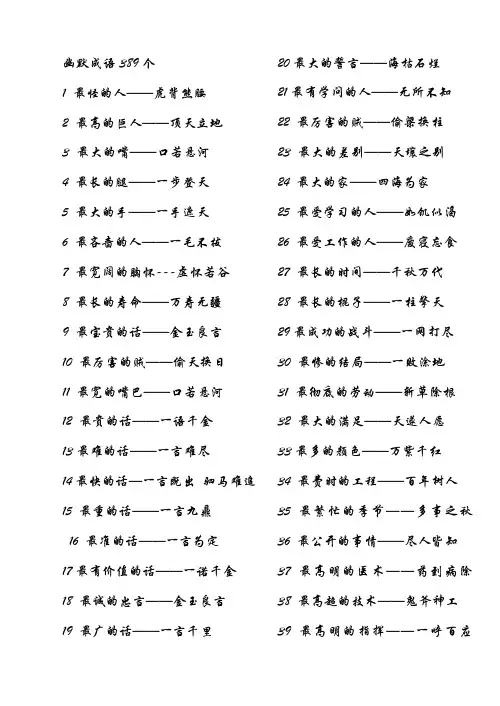 幽默成语389个
1 最怪的人——虎背熊腰
2 最高的巨人——顶天立地
3 最大的嘴——口若悬河
4 最长的腿——一步登天
5 最大的手——一手遮天
6 最吝啬的人——一毛不拔
7 最宽阔的胸怀---虚怀若谷
8 最长的寿命——万寿无疆
9 最宝贵的话——金玉良言
10 最厉害的贼——偷天换日
11 最宽的嘴巴——口若悬河
12 最贵的话——一语千金
13最难的话——一言难尽
14最快的话—一言既出 驷马难追
15 最重的话——一言九鼎
16 最准的话——一言为定
17最有价值的话——一诺千金
18 最诚的忠言——金玉良言
19 最广的话——一言千里
20最大的誓言——海枯石烂
21最有学问的人——无所不知
22 最厉害的贼——偷梁换柱
23 最大的差别——天壤之别
24 最大的家——四海为家
25 最爱学习的人——如饥似渴
26 最爱工作的人——废寝忘食
27 最长的时间——千秋万代
28 最长的棍子——一柱擎天
29最成功的战斗——一网打尽
30 最惨的结局——一败涂地
31 最彻底的劳动——斩草除根
32 最大的满足——天遂人愿
33最多的颜色——万紫千红
34 最费时的工程——百年树人
35 最繁忙的季节——多事之秋
36 最公开的事情——尽人皆知
37 最高明的医术——药到病除
38 最高超的技术——鬼斧神工
39 最高明的指挥——一呼百应